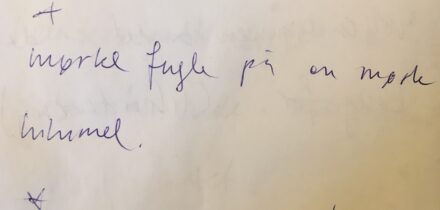 mørke fugle på en mørk
himmel.